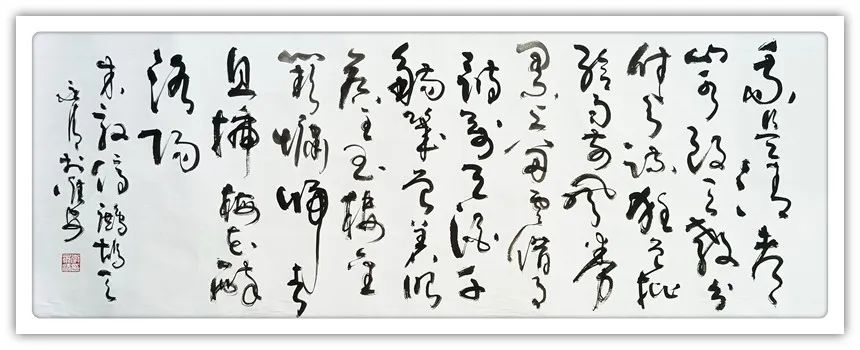 我是清都
山水郎天教分
付与疏狂曾批
给雨支风券
累上留云借月
诗万首酒千
觞几曾着眼
侯王玉楼金
阙慵归去
且插梅花醉
洛阳
朱敦儒鹧鸪天